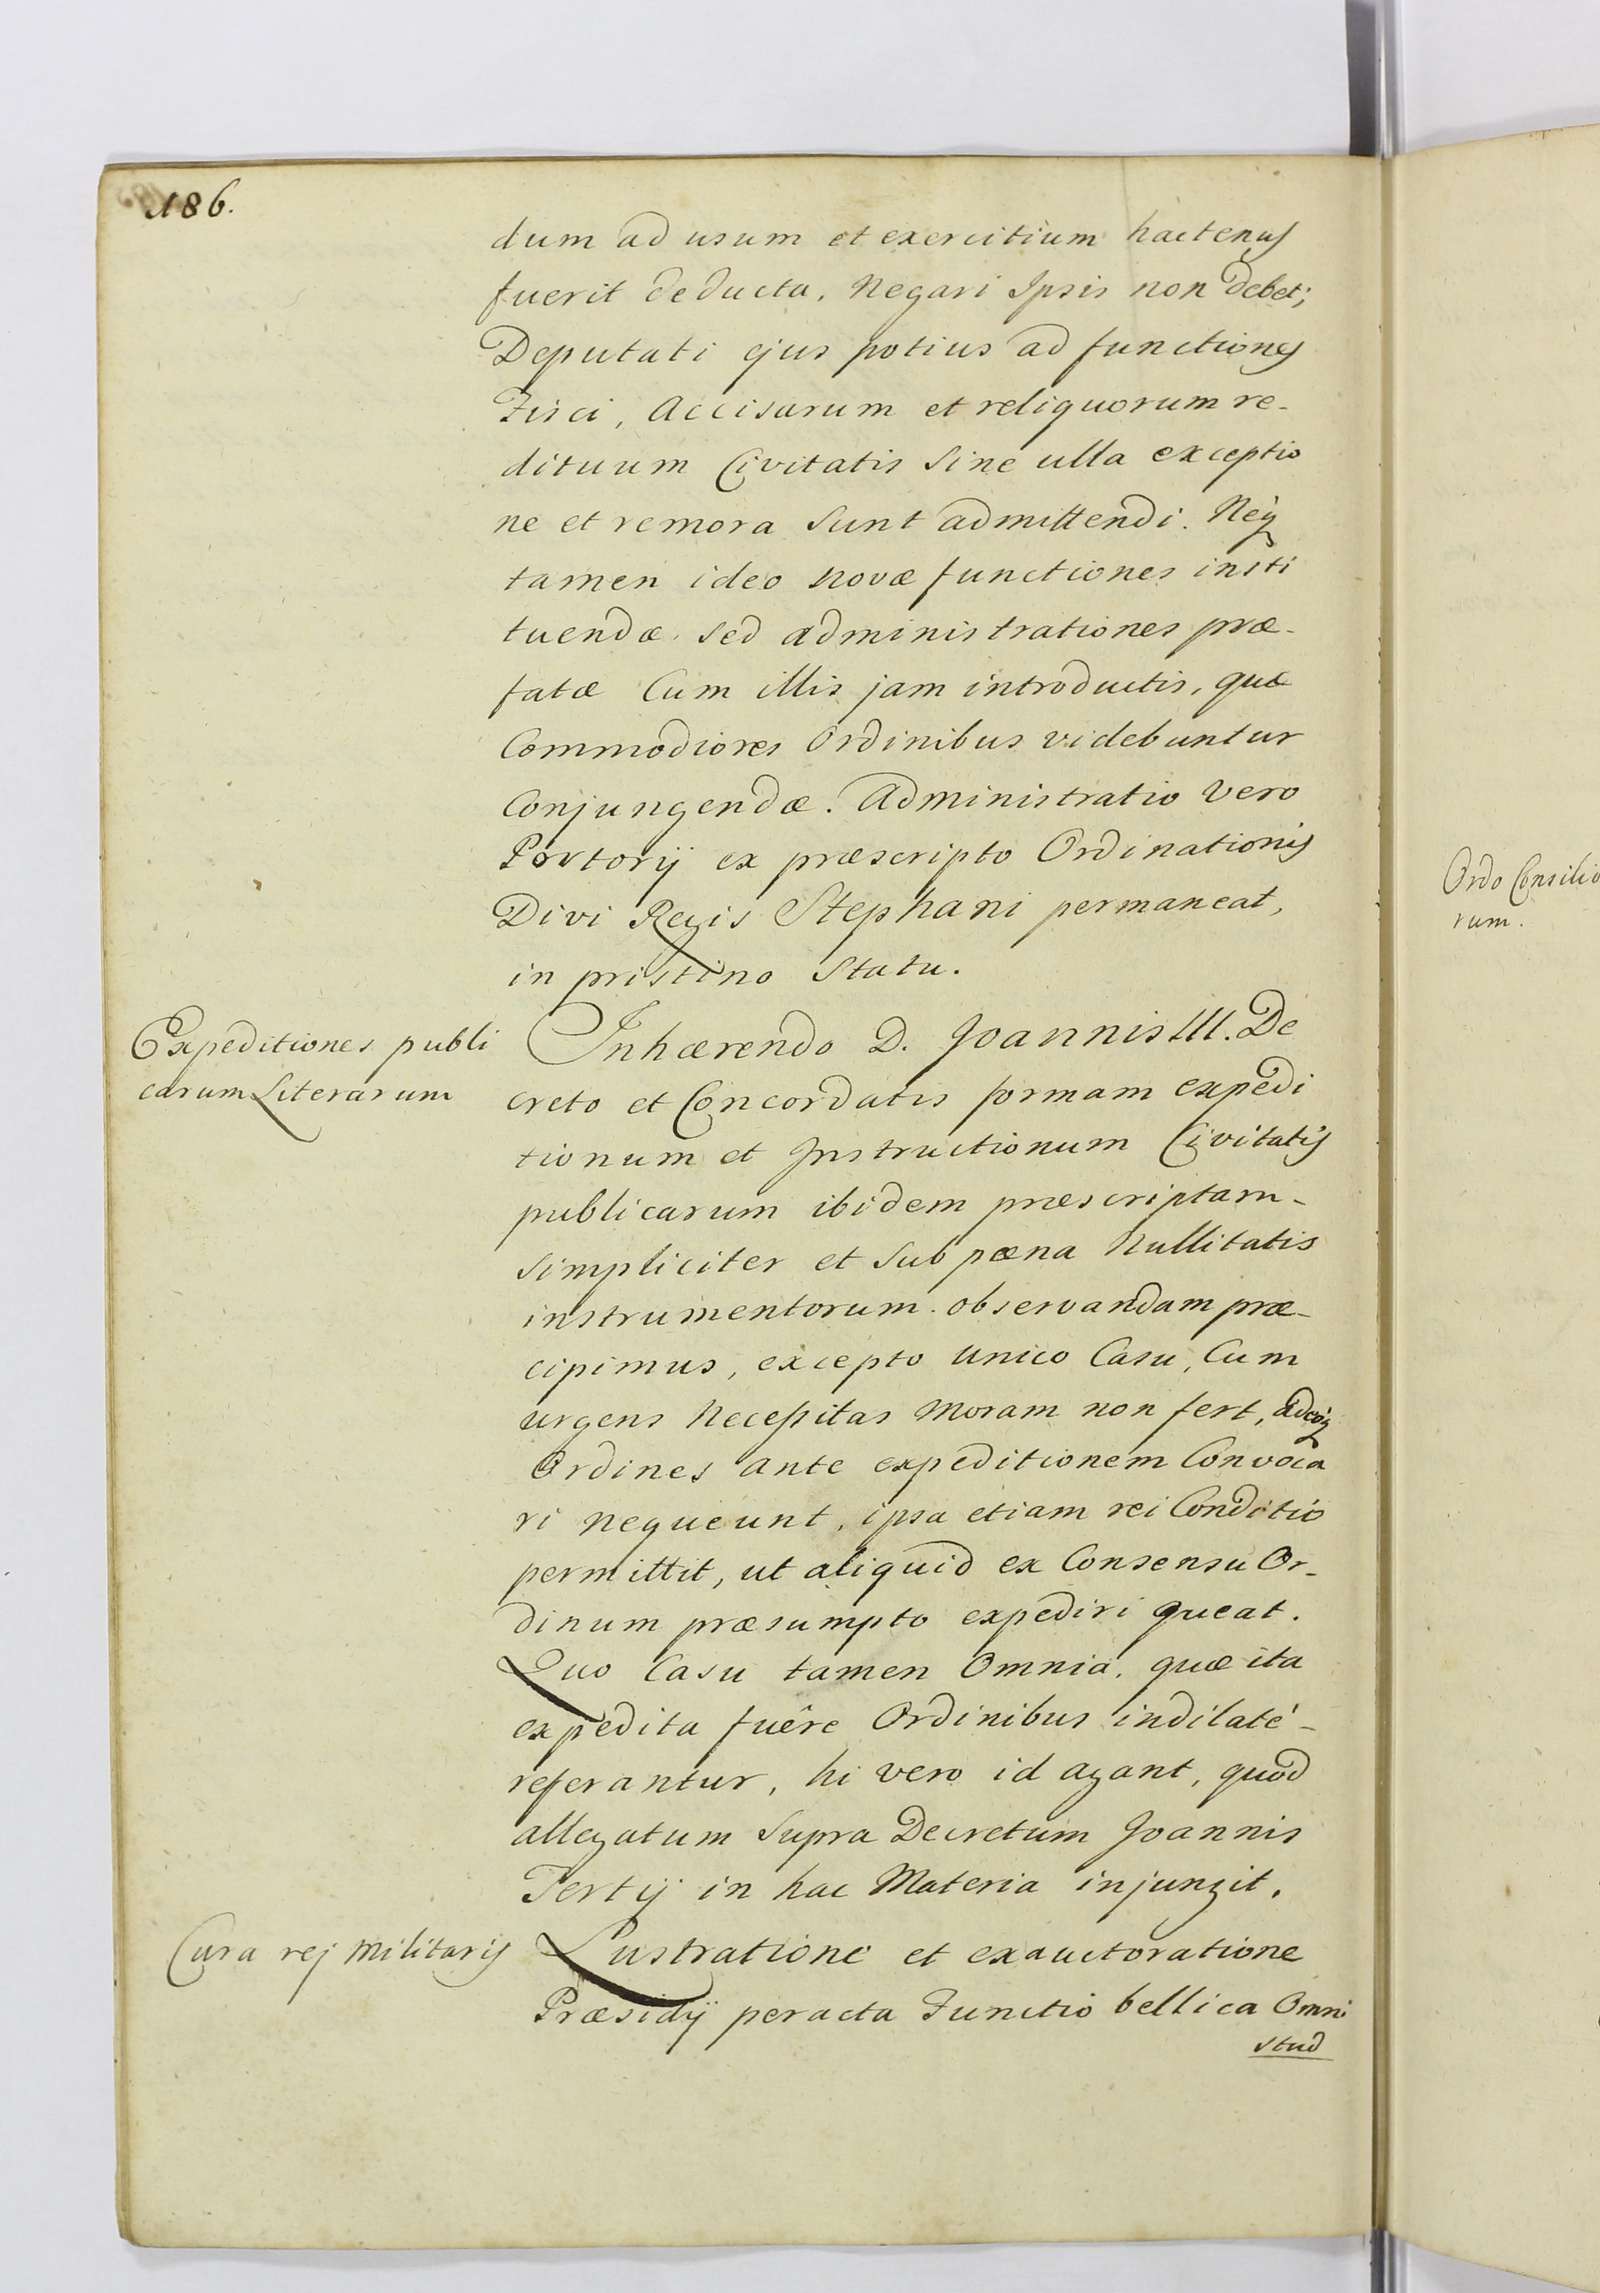 186.
dum ad usum et exercitium hactenus
fuerit deducta, Negari Ipsis non debet;
Deputati ejus potius ad functiones
Fisci, Accisarum et reliquorum re-
dituum Civitatis sine ulla exceptio
ne et remora sunt admittendi. Neq
tamen ideo novæ functiones insti
tuendæ, sed administrationes præ-
fatæ Cum illis jam introductis, quæ
Commodiores Ordinibus videbuntur
Conjungendæ. Administratio Vero
Portorij ex præscripto Ordinationis
Divi Regis Stephani permaneat,
in pristino Statu.
Expeditiones publi
carum Literarum
Inhærendo D. Joannis III. De
creto et Concordatis formam expedi
tionum et Instructionum Civitatis
publicarum ibidem præscriptam-
simpliciter et sub pæna Nullitatis
instrumentorum observandam præ-
cipimus, excepto unico Casu, Cum
urgens Necessitas Moram non fert, adeoq
Ordines ante expeditionem Convoca
ri nequeunt, ipsa etiam rei Conditio
permittit, ut aliquid ex Consensu Or-
dinum præsumpto expediri queat.
Quo Casu tamen Omnia, quæ ita
expedita fuêre Ordinibus indilaté-
referantur, hi vero id agant, quod
allegatum Supra Decretum Joannis
Tertij in hac Materia injungit.
Cura rej Militaris
Lustratione et exauctoratione
Præsidij peracta Functio bellica Omni
stud
Ordo Consilio
rum.